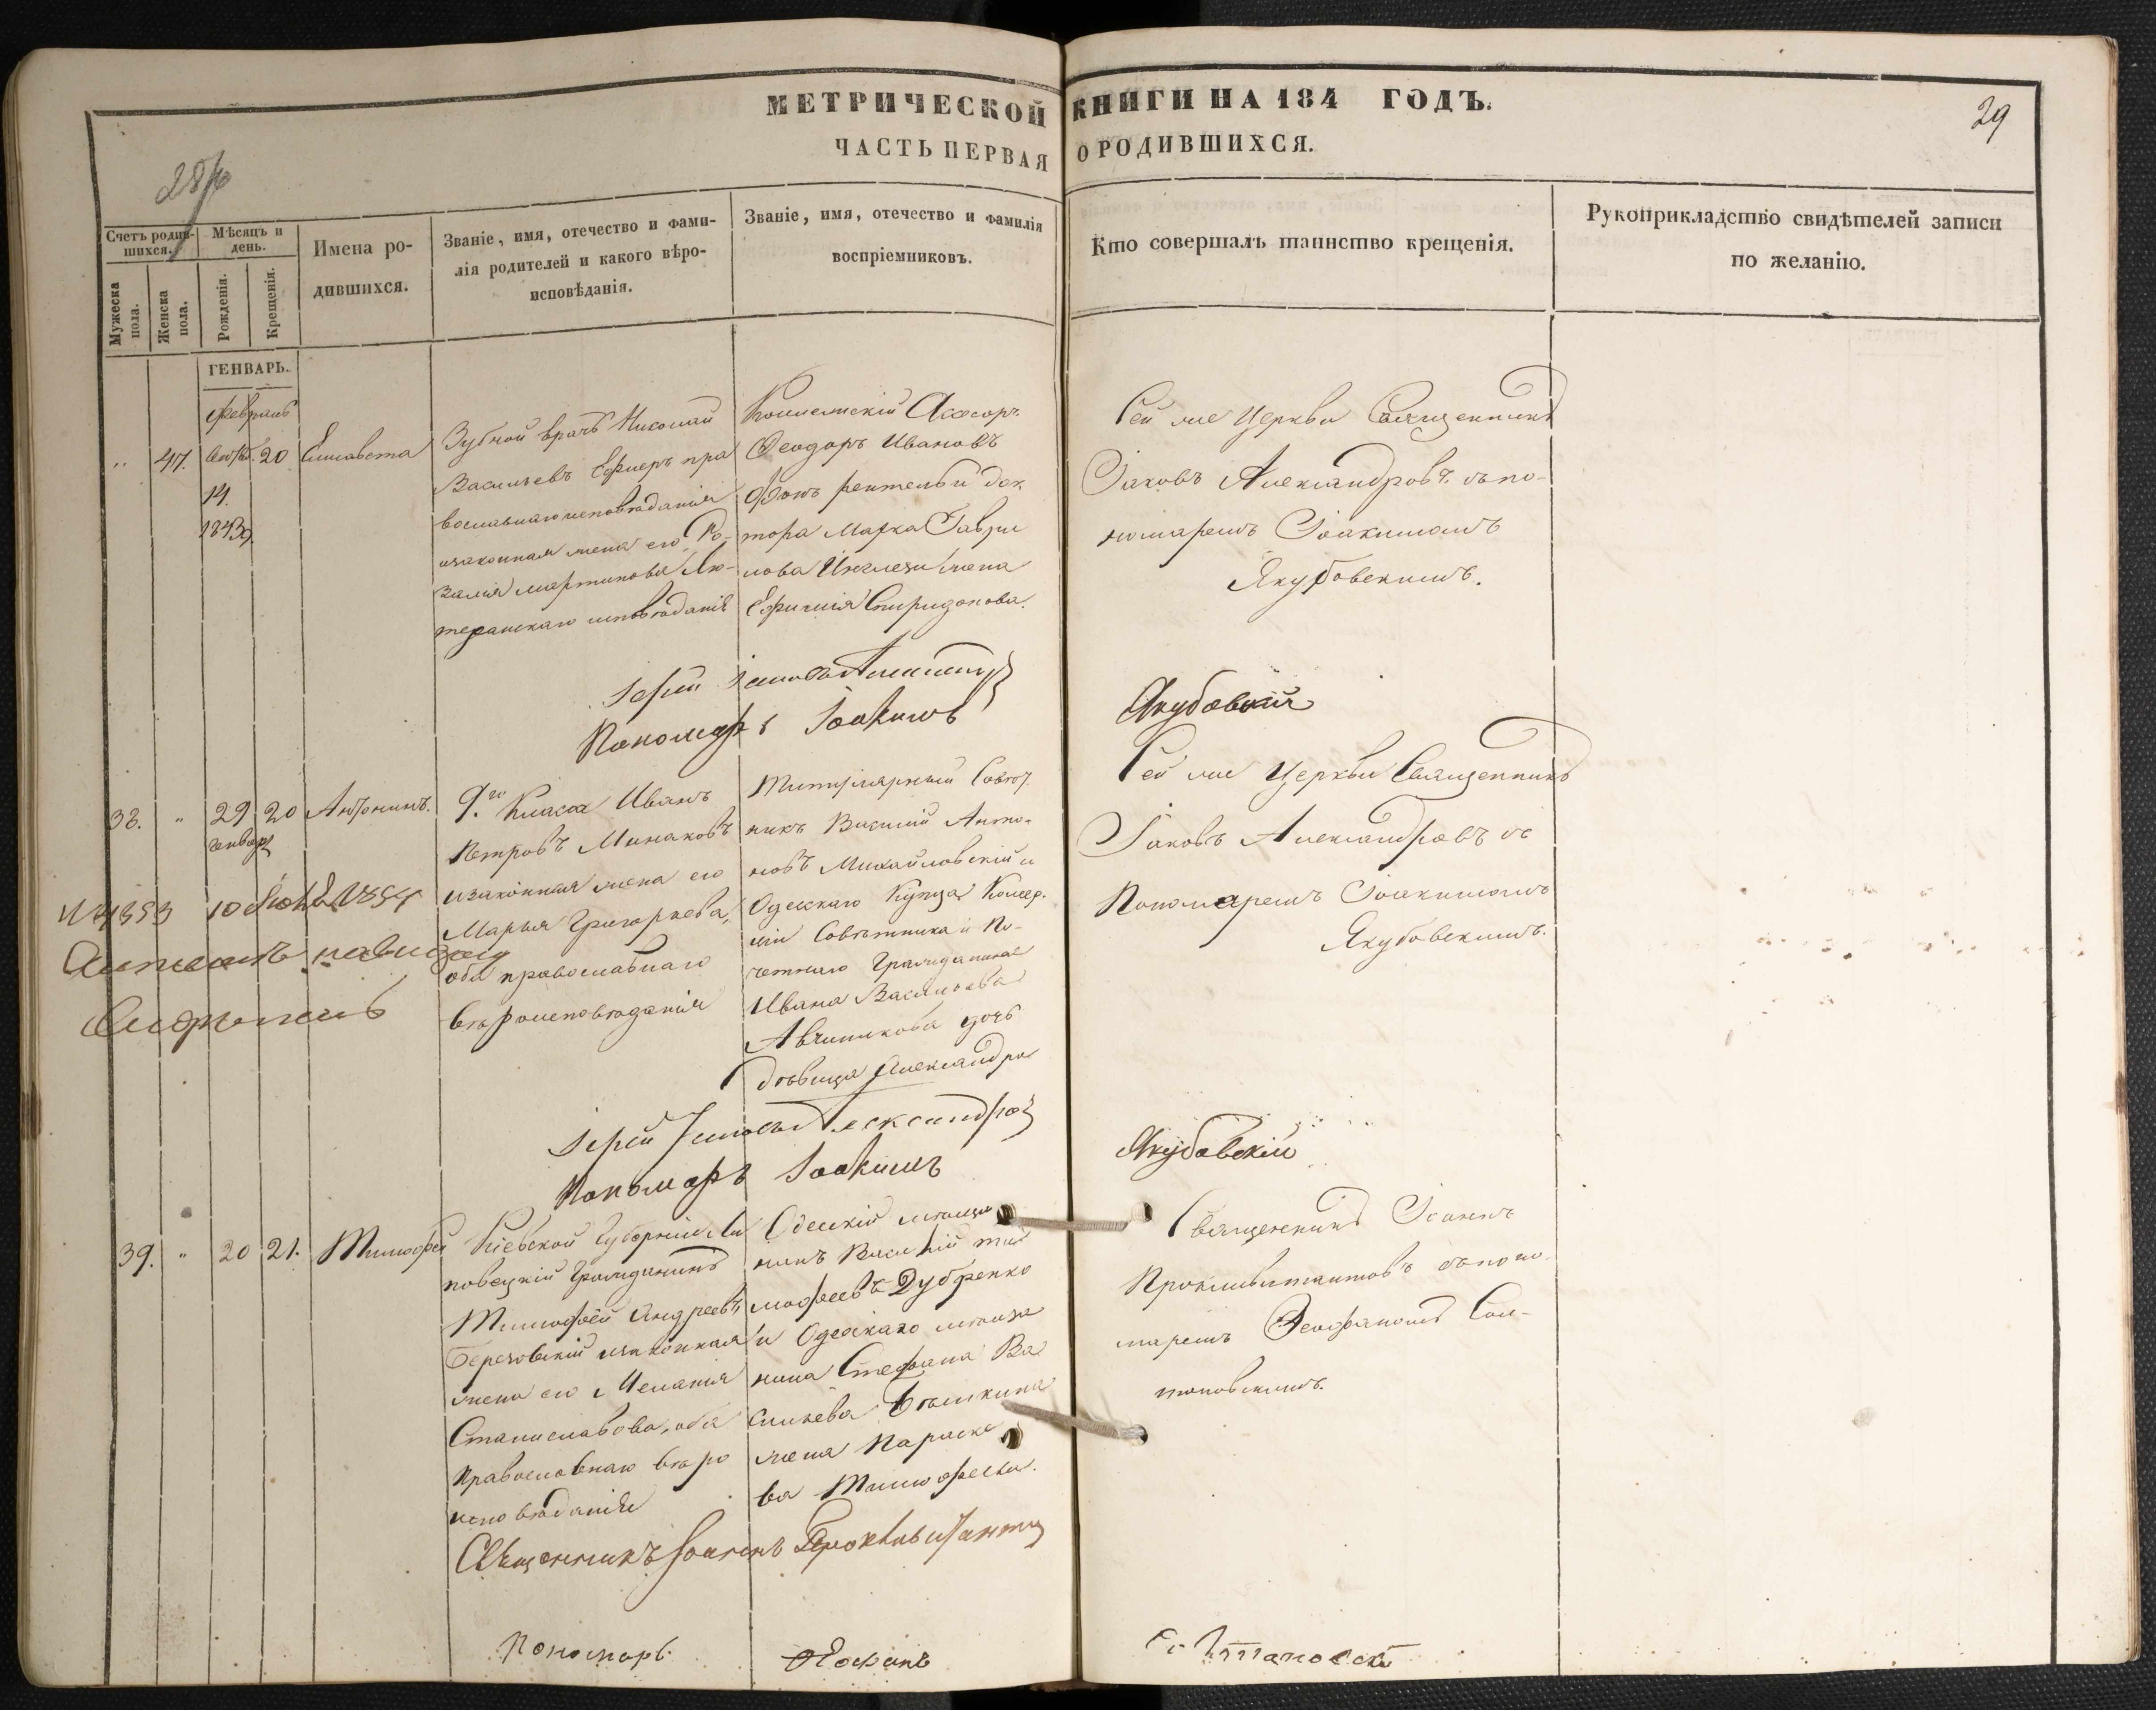 МЕТРИЧЕСКОЙ КНИГИ НА 184 ГОДЪ.
29
ЧАСТЬ ПЕРВАЯ О РОДИВШИХСЯ.
Счетъ родив-
шихся.
Мужеска пола.
Женска пола.
Мѣсяцъ и
день.
Рожденія.
Крещенія.
Имена ро-
дившихся.
Званіе, имя, отечество и фами-
лія родителей и какого вѣро-
исповѣданія.
Званіе, имя, отечество и фамилія
воспріемниковъ.
Кто совершалъ таинство крещенія.
Рукоприкладство свидѣтелей записи
по желанію.
ГЕНВАРЬ.
Февраль
47. 20 Елисавета
14.
1843
Зубной врачъ Николай
Васильевъ пра
вославнаго исповѣданія
изаконная жена его Ро-
залія Мартинова Лю-
теранскаго исповѣданія
Ассесоръ
Феодоръ Ивановъ
док
тора Марка Гаври
лова жена
Спиридонова.
Сей же Церкви Священникъ
Іаковъ Александровъ съ по-
номаремъ Іоакимомъ
Якубовскимъ.
Іерей
Пономарь Іоакимъ Якубовскій
38. " 29 20
генваря
9.го Класса Иванъ
Петровъ Минаковъ
изаконная жена его
Марья Григорьева,
оба православнаго
вѣроисповѣданія
Титулярный Совѣт
никъ Василий Анто-
новъ Михайловскій и
Одесскаго Купца Комер-
ціи Совѣтника и По-
четнаго Гражданина
Ивана Васильева
Авчинникова дочь
дѣвица Александра
Сей же Церкви Священникъ
Іаковъ Александровъ съ
Пономаремъ Іоакимомъ
Якубовскимъ.
10 Іюня 1854
Іерей Александров
Пономарь Іоакимъ Якубовскій
39. " 20 21. Тимофей
Кіевской Губерніи Ли
повецкій Гражданинъ
Тимофей Андреевъ
Березовскій изаконная
жена его Меланія
Станиславова, оба
Православнаго вѣро
исповѣданія
Одесскій мѣща
нинъ Василій Ти
мофеевъ Дубренко
и Одесскаго мѣща
нина Стефана Ва
сильева
жена Параске
ва Тимофеева.
Священникъ Іоаннъ
съ поно-
маремъ Феофаномъ Сом-
тановскимъ.
Священникъ Іоаннъ
Пономарь